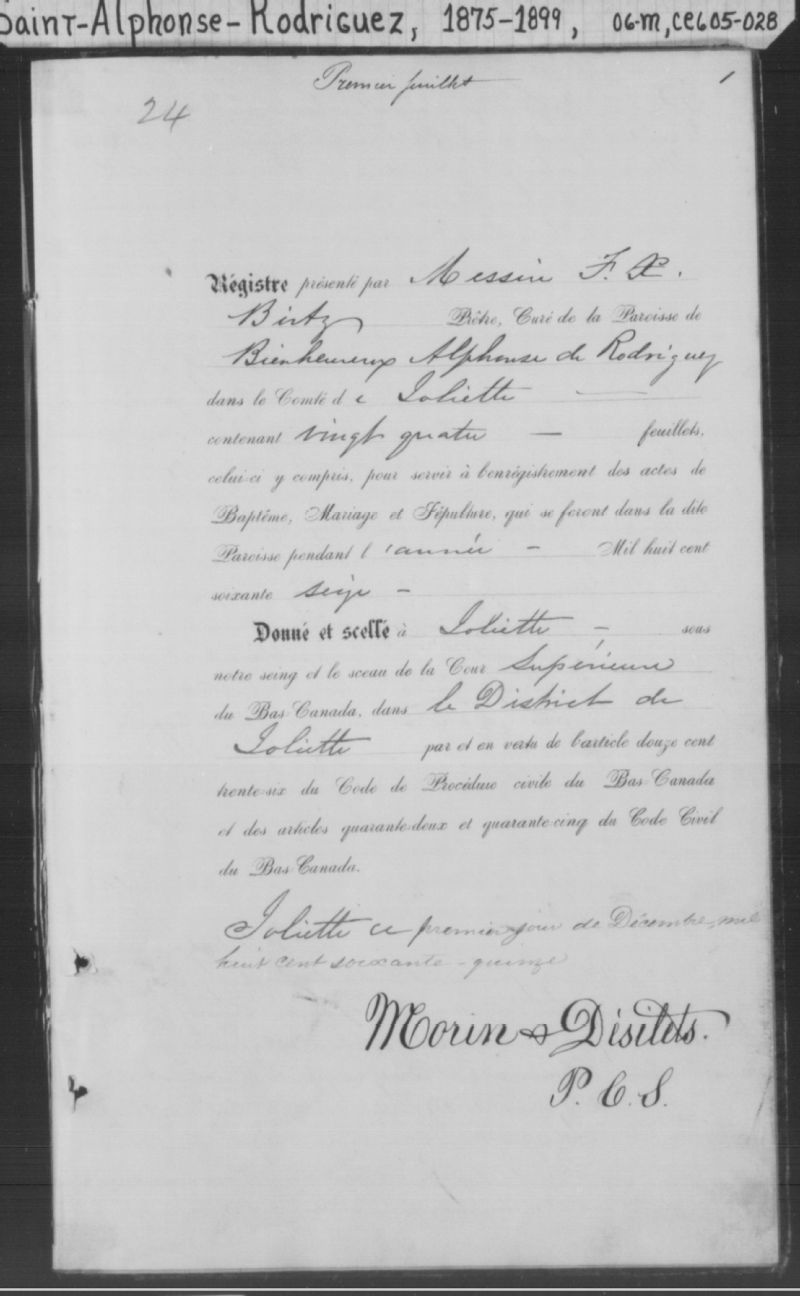 Saint-Alphonse-Rodriguez, 1875-1899, 06-M, CE605-028
Premier feuillet
1
24
Régistre présenté par Messire F. X.
Birtz Prêtre, Curé de la Paroisse de
Bienheureux Alphonse de Rodriguez
dans le Comté de Joliette
contenant vingt quatre — feuillets,
celui-ci y compris, pour servir à l'enrégistrement des actes de
Baptême, Mariage et Sépulture, qui se feront dans la dite
Paroisse pendant l'année — Mil huit cent
soixante seize —
Donné et scellé à Joliette — sous
notre seing et le sceau de la Cour Supérieure
du Bas-Canada, dans le District de
Joliette par et en vertu de l'article douze cent
trente-six du Code de Procédure civile du Bas-Canada
et des articles quarante-deux et quarante-cinq du Code Civil
du Bas-Canada.
Joliette ce premier jour de Décembre, mil
huit cent soixante-quinze
Morin & Désilets.
P. C. S.